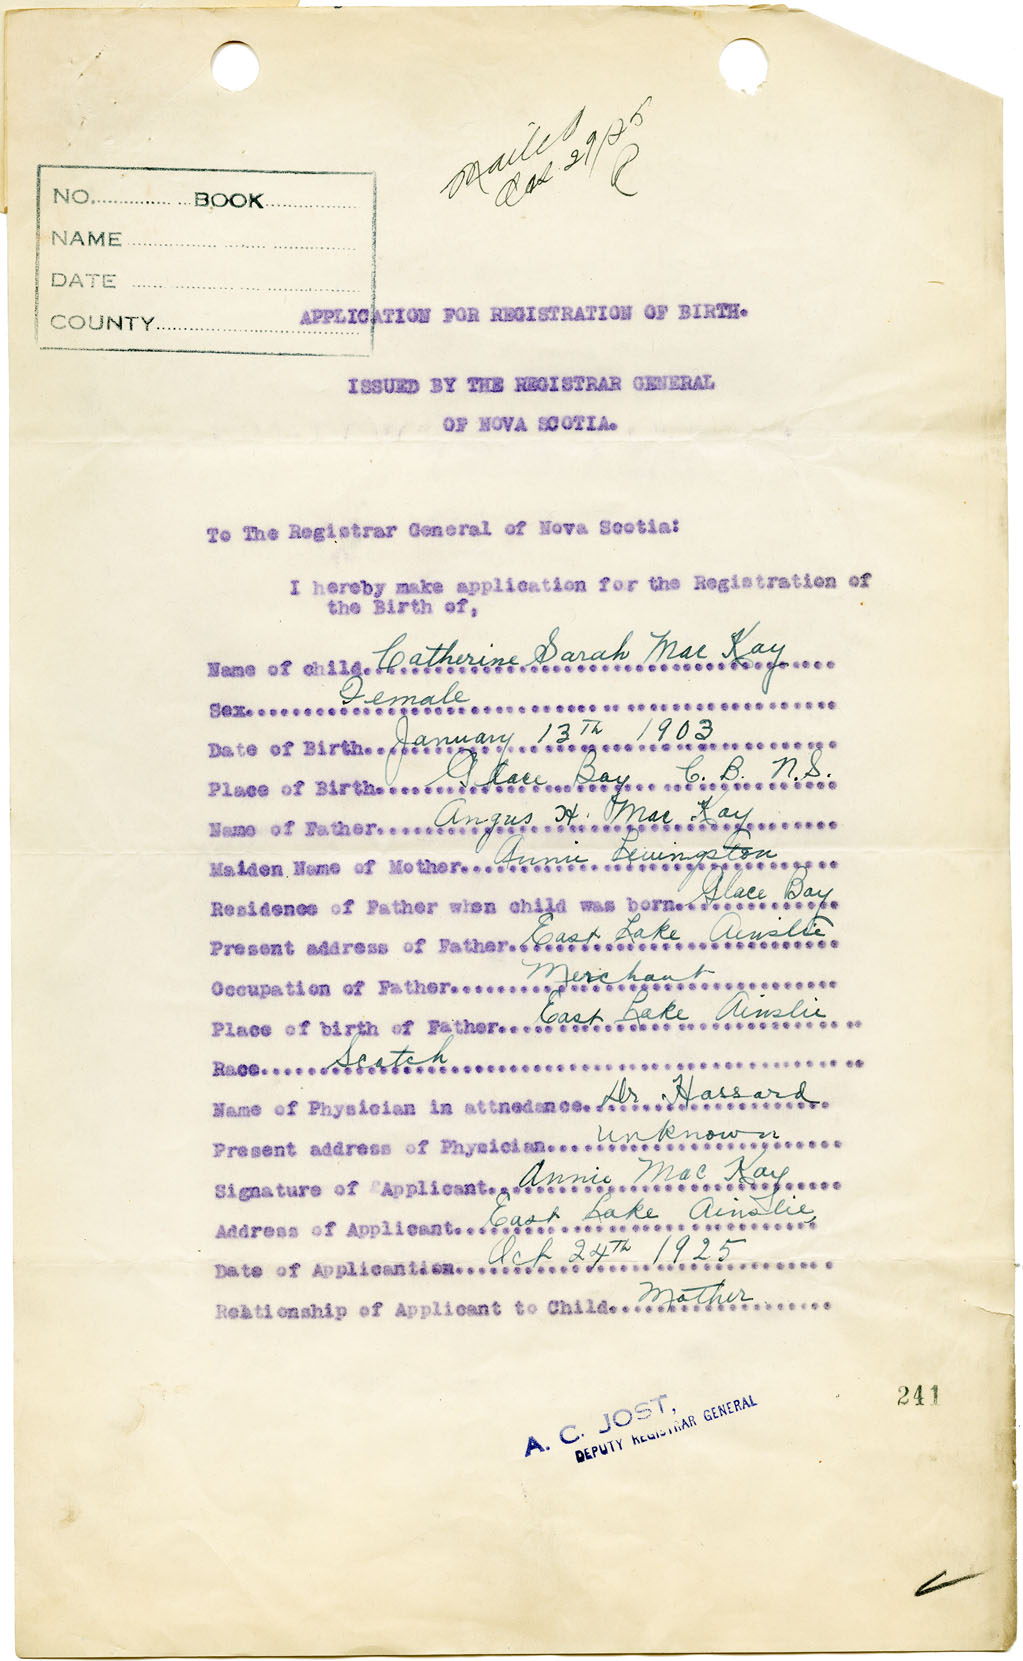 Mailed
Oct 29/25
NO. BOOK
NAME
DATE
COUNTY
APPLICATION FOR REGISTRATION OF BIRTH.
ISSUED BY THE REGISTRAR GENERAL
OF NOVA SCOTIA.
To The Registrar General of Nova Scotia:
I hereby make application for the Registration of
the Birth of,
Name of child. Catherine Sarah Mac Kay
Sex. Female
Date of Birth. January 13Th 1903
Place of Birth. Glace Bay C. B. N.S.
Name of Father. Angus H. Mac Kay
Maiden Name of Mother. Annie Levingston
Residence of Father when child was born. Glace Bay
Present address of Father. East Lake Ainslie
Occupation of Father. Merchant
Place of birth of Father. East Lake Ainslie
Race. Scotch
Name of Physician in attnedance. Dr. Hassard
Present address of Physician. unknown
Signature of Applicant. Annie Mac Kay
Address of Applicant. East Lake Ainslie,
Date of Applicantion. Oct 24th 1925
Relationship of Applicant to Child. Mother
241
A. C. JOST,
DEPUTY REGISTRAR GENERAL